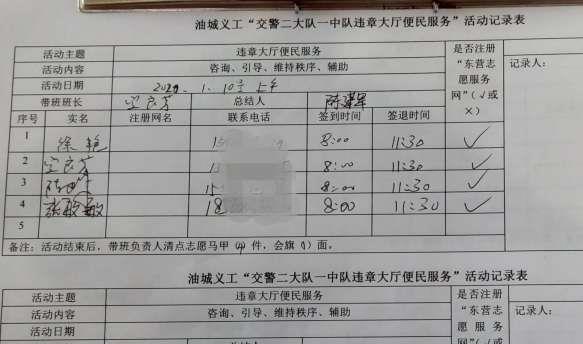 油城义工“交警二大队一中队违章大厅便民服务”活动记录表
活动主题 违章大厅便民服务 是否注册“东营志愿服务网”(√或×) 记录人:
活动内容 咨询、引导、维持秩序、辅助
活动日期 1.10号上午
带班班长 总结人
序号 实名 注册网名 联系电话 签到时间 签退时间
1 徐艳 8:00 11:30 ✓
2 8:00 11:30 ✓
3 8:00 11:30 ✓
4 18 8:00 11:30 ✓
5
备注:活动结束后,带班负责人清点志愿马甲 件,会旗(1)面。
油城义工“交警二大队一中队违章大厅便民服务”活动记录表
活动主题 违章大厅便民服务 是否注册“东营志愿服务网”(√或 记录人:
活动内容 咨询、引导、维持秩序、辅助
活动日期